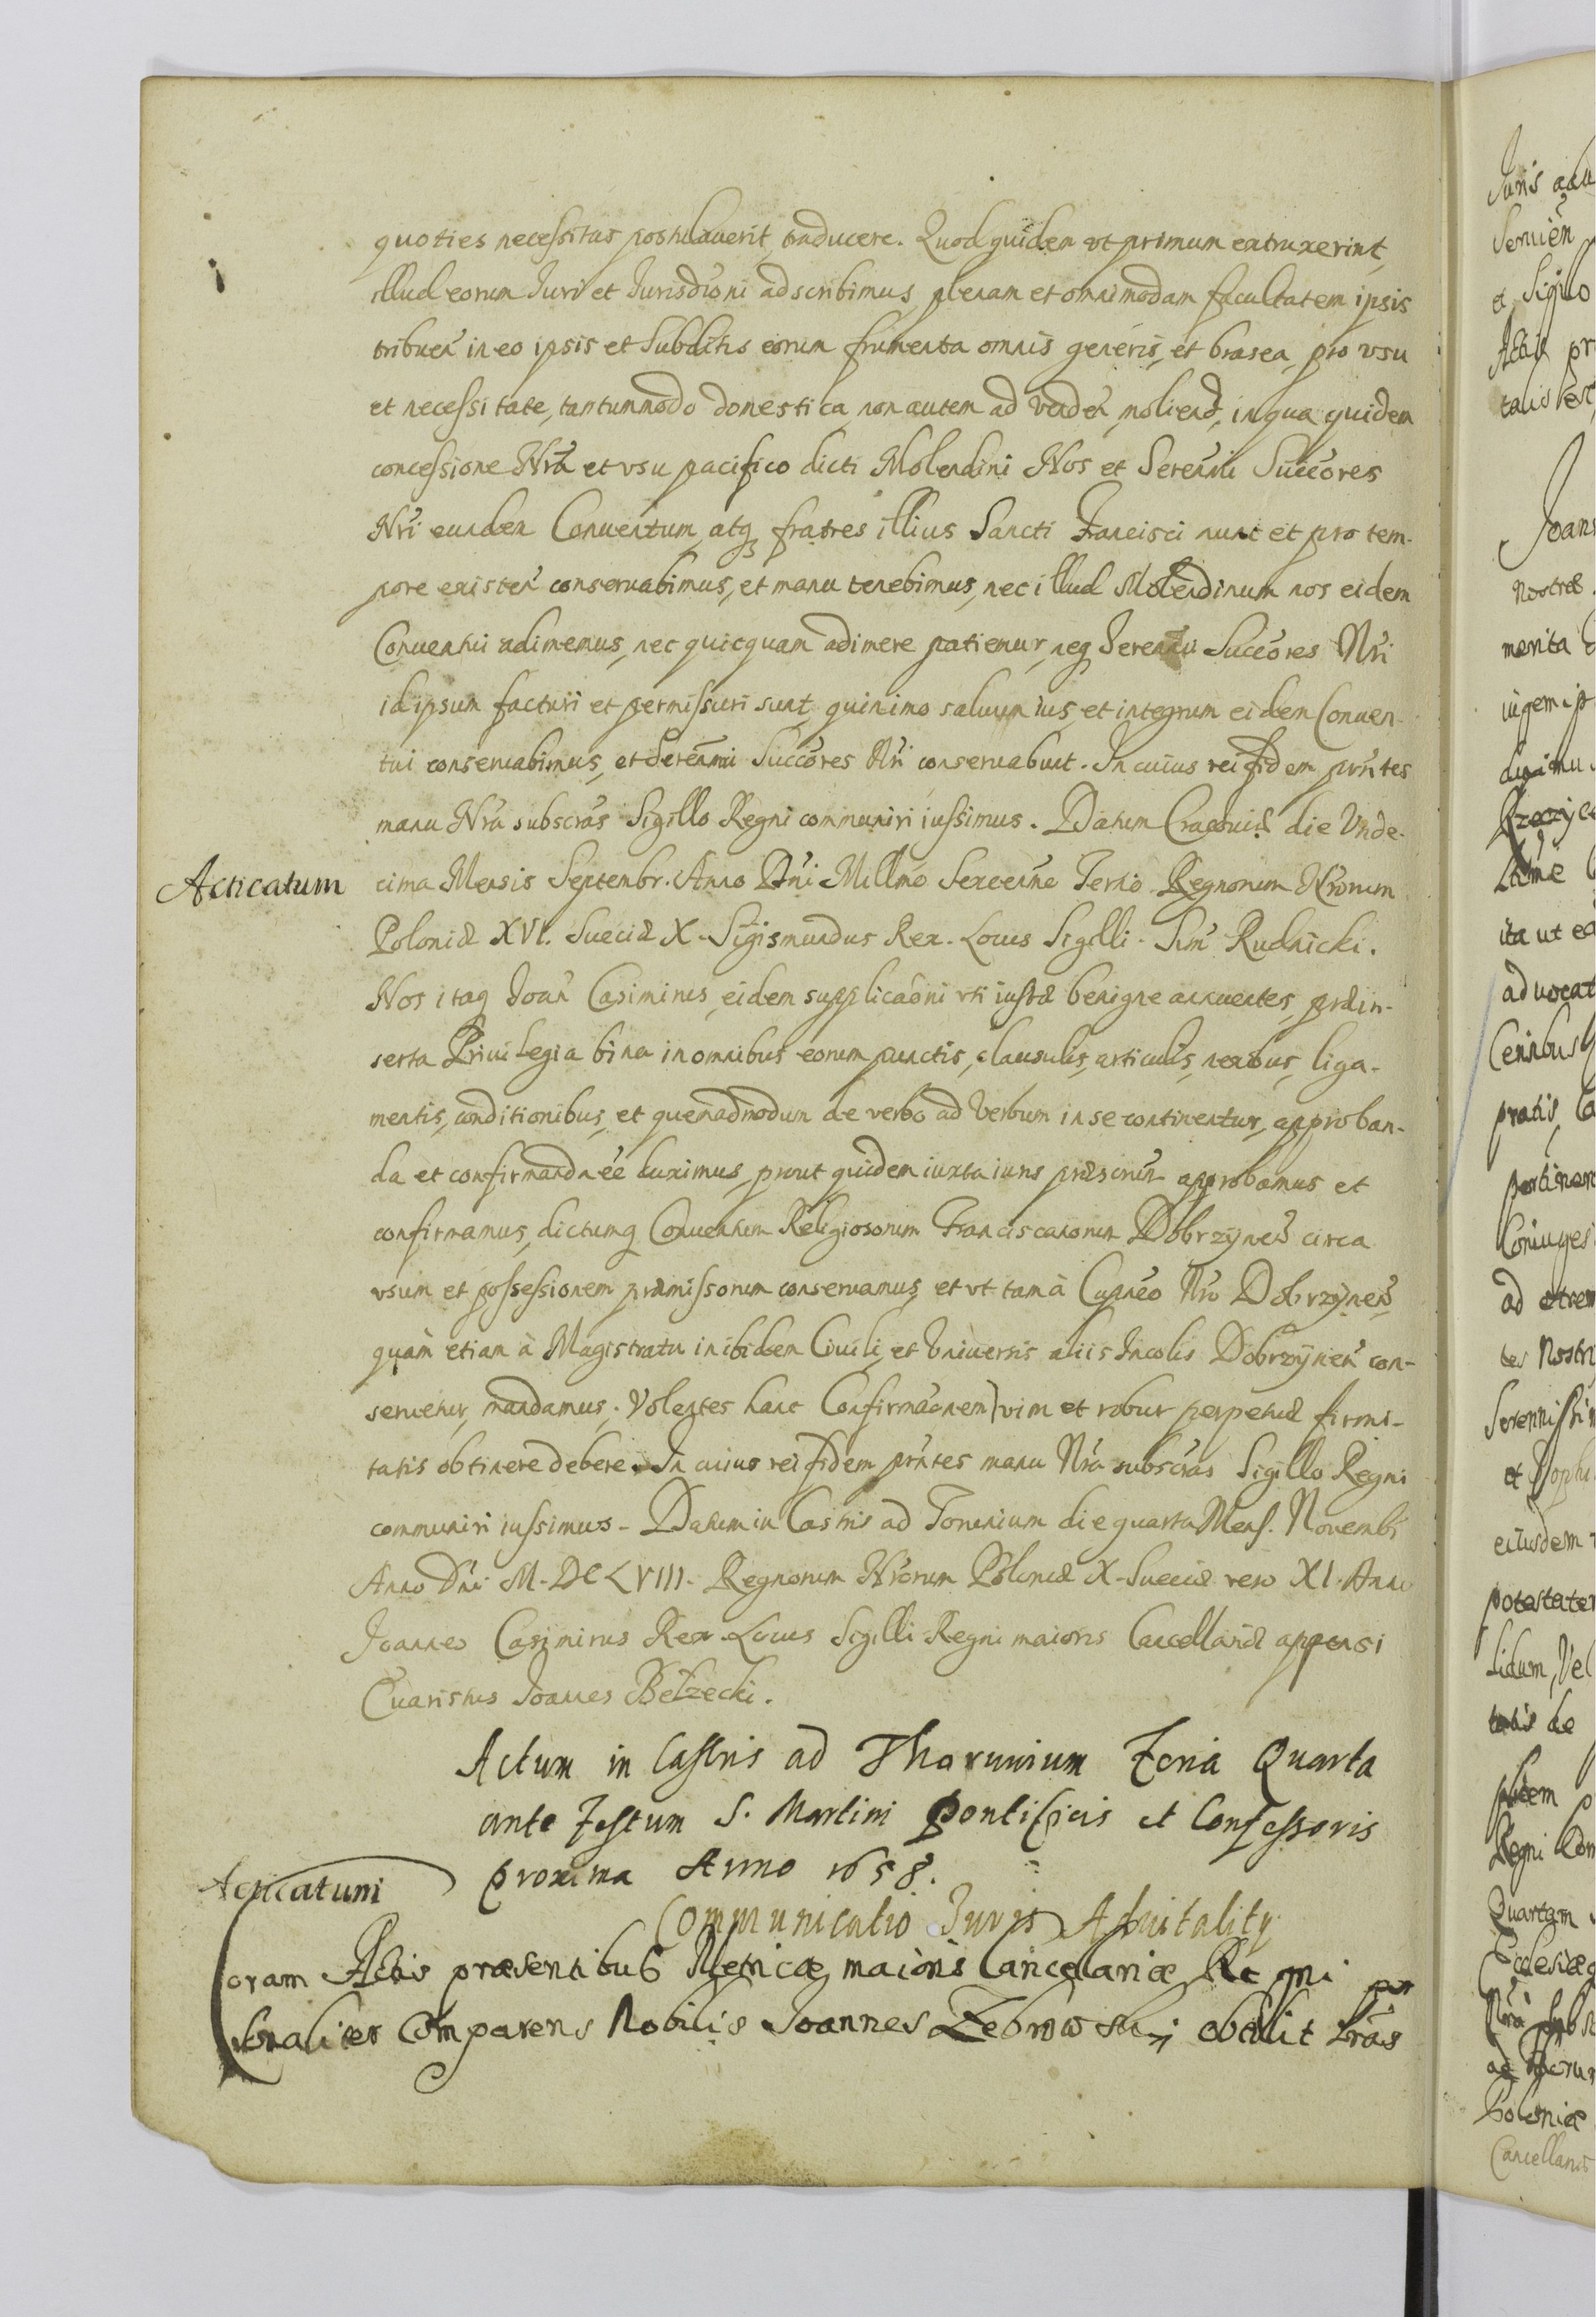 quoties necessitas postulauerit, traducere. Quod quidem vt primum extruxerint,
illud eorum Juri et Jurisdioni adscribimus, plenam et omnimodam facultatem ipsis
tribuen in eo ipsis et Subditis eorum frumenta omnis generis, et brasea, pro vsu
et necessitate, tantummodo domestica, non autem ad venden, moliend, in qua quidem
concessione Nra et vsu pacifico dicti Molendini Nos et Serenmi Succores
Nri eunden Conuentum, atq fratres illius Sancti Francisci nunc et pro tem-
pore existen conseruabimus, et manu tenebimus, nec illud Molendinum nos eidem
Conuentui adimemus, nec quicquam adimere patiemur, neq Serenmi Succores Nri
id ipsum facturi et permissuri sunt, quinimo saluum ius, et integrum eidem Conuen-
tui conseruabimus, et Serenmi Succores Nri conseruabunt. In cuius rei fidem pntes
manu Nra subscras Sigillo Regni communiri iussimus. Datum Cracouiæ die Vnde-
Acticatum
cima Mensis Septembr. Anno Dni Millmo Sexcenne Tertio Regnorum Nrorum
Poloniæ XVI. Sueciæ X. Sigismundus Rex. Locus Sigilli. Sim Rudnicki.
Nos itaq Joan Casimirus, eidem supplicaoni vti iustæ benigne annuentes, præin-
serta Priuilegia bina in omnibus eorum punctis, clausulis, articulis, nexibus, liga-
mentis, conditionibus, et quemadmodum de verbo ad Verbum in se continentur, approban-
da et confirmanda ee duximus, prout quidem iuxta iuris præscrum approbamus et
confirmamus, dictumq Conuentum Religiosorum Franciscanorum Dobrzÿnen circa
vsum et possessionem præmissorum conseruamus, et vt tam à Capneo Nro Dobrzÿnen,
quàm etiam à Magistratu inibidem Ciuili, et Vniuersis aliis Incolis Dobrzÿnen con-
seruetur, mandamus. Volentes hanc Confirmaonem vim et robur perpetuæ firmi-
tatis obtinere debere. In cuius rei fidem pntes manu Nra subscras Sigillo Regni
communiri iussimus. Datum in Castris ad Torunium die quarta Mens. Nouembr
Anno Dni M.DCLVIII. Regnorum Nrorum Poloniæ X. Sueciæ vero XI. Anno
Joannes Casimirus Rex. Locus Sigilli Regni maioris Cancellariæ appensi
Euaristus Joannes Bełzecki.
Actum in Castris ad Thorunium Feria Quarta
ante Festum S. Martini Pontificis et Confessoris
proxima Anno 1658.
Acticatum
Communicatio Juris Aduitalitz
Coram Actis præsentibus Metricæ maioris Cancelariæ Regni per
sonaliter Comparens Nobilis Joannes Zebrowskj obtulit Lras